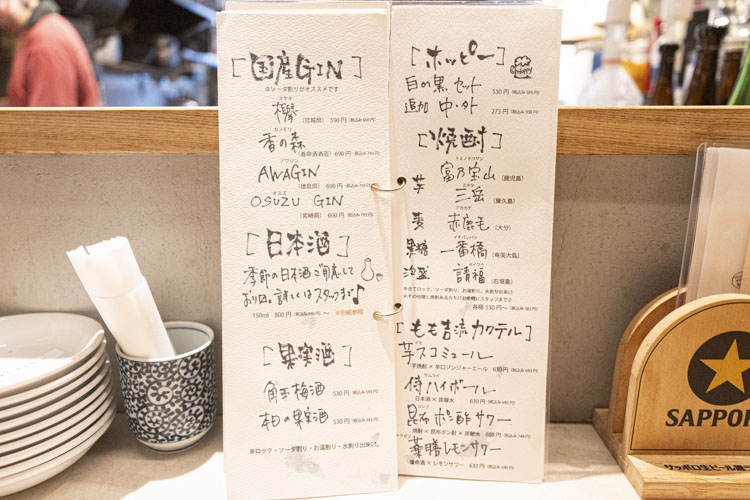 [国産GIN]
※ソーダ割りがオススメです
ケヤキ
欅
(宮城県) 590円(税込み649円)
カノモリ
香の森
(養命酒酒造) 690円(税込み759円)
アワジン
AWAGIN
(徳島県) 690円(税込み759円)
オスズ
OSUZU GIN
(宮崎県) 690円(税込み759円)
[日本酒]
季節の日本酒ご用意して
おります。詳しくはスタッフまで♪
150ml 800円(税込み880円)～ ※別紙参照
[果実酒]
角玉梅酒 530円(税込み583円)
本日の果実酒 530円(税込み583円)
※ロック・ソーダ割り・お湯割り・水割り出来ます
[ホッピー]
白の黒 セット 530円(税込み583円)
追加 中・外 273円(税込み300円)
[焼酎]
トミノホウザン
芋 富乃宝山(鹿児島)
ミタケ
三岳(屋久島)
アカカゲ
麦 赤鹿毛(大分)
イチバンバシ
黒糖 一番橋(奄美大島)
セイフク
泡盛 請福(石垣島)
※全てロック、ソーダ割り、お湯割り、水割り出来ます
各種530円～(税込み583円)
[もも吉流カクテル]
芋スコミュール
芋焼酎×辛口ジンジャーエール 630円(税込み693円)
サムライ
侍ハイボール
日本酒×炭酸水 630円(税込み693円)
昆布ポン酢サワー
焼酎×昆布ポン酢×炭酸水 680円(税込み748円)
ヤクゼン
薬膳レモンサワー
養命酒×レモンサワー 630円(税込み693円)
SAPPORO
サッポロ生ビール黒ラベル